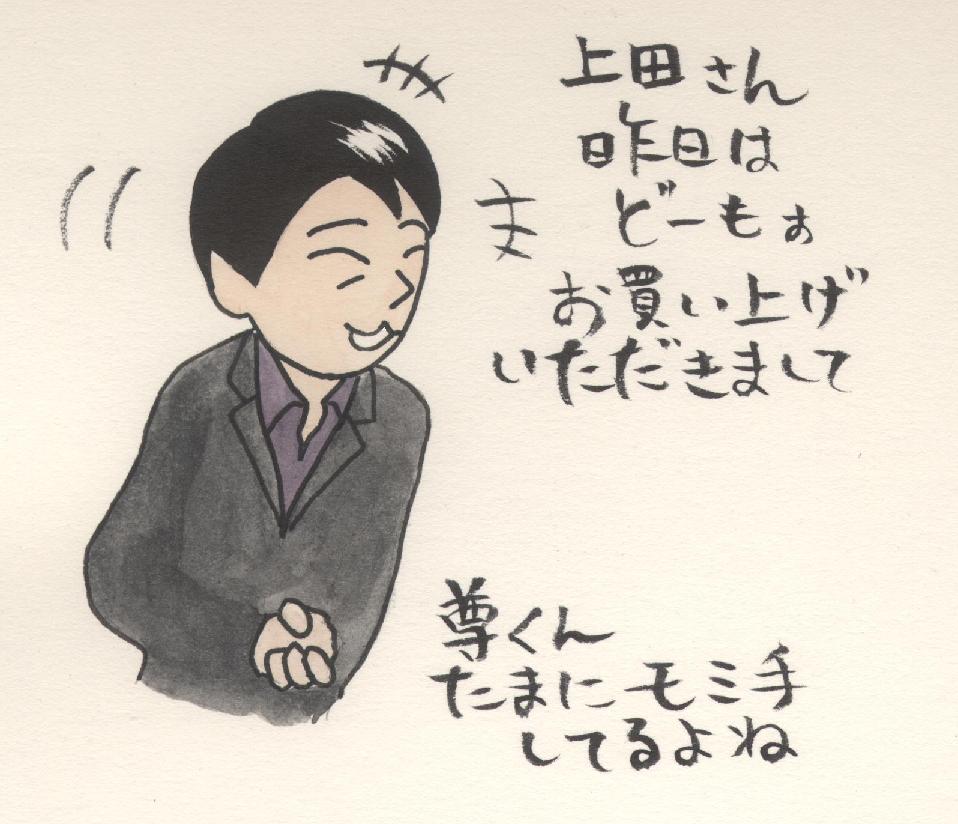 上田さん
昨日は
どーもぉ
お買い上げ
いただきまして
尊くん
たまにモミ手
してるよね